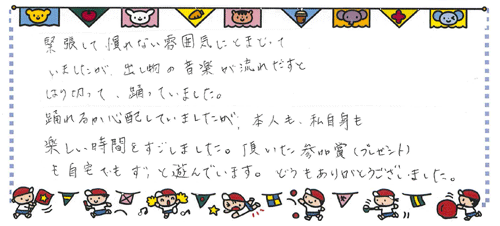 緊張して慣れない雰囲気にとまどって
いましたが、出し物の音楽が流れだすと
はり切って、踊っていました。
踊れるか心配していましたが、本人も、私自身も
楽しい時間をすごしました。頂いた参加賞(プレゼント)
も自宅でもずっと遊んでいます。どうもありがとうございました。